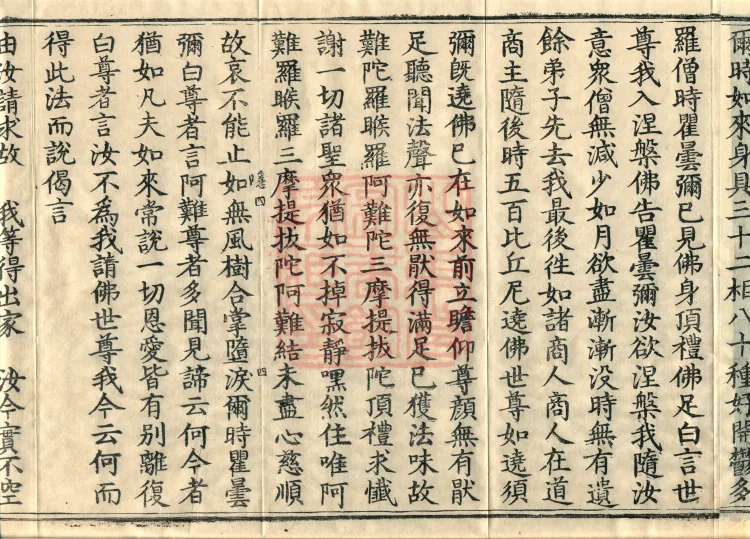 爾時如來身具三十二相八十種好開鬱多
羅僧時瞿曇彌已見佛身頂禮佛足白言世
尊我入涅槃佛告瞿曇彌汝欲涅槃我隨汝
意衆僧無減少如月欲盡漸漸没時無有遺
餘弟子先去我最後徃如諸商人商人在道
商主隨後時五百比丘尼遶佛世尊如遶須
彌旣遶佛已在如來前立瞻仰尊顔無有猒
足聽聞法聲亦復無猒得滿足已獲法味故
難陀羅睺羅阿難陀三摩提拔陀頂禮求懴
謝一切諸聖衆猶如不掉寂靜嘿然住唯阿
難羅睺羅三摩提拔陀阿難結未盡心慈順
故哀不能止如無風樹合掌墮淚爾時瞿曇
彌白尊者言阿難尊者多聞見諦云何今者
猶如凡夫如來常說一切恩愛皆有别離復
白尊者言汝不爲我請佛世尊我今云何而
得此法而說偈言
由汝請求故　我等得出家　汝今實不空